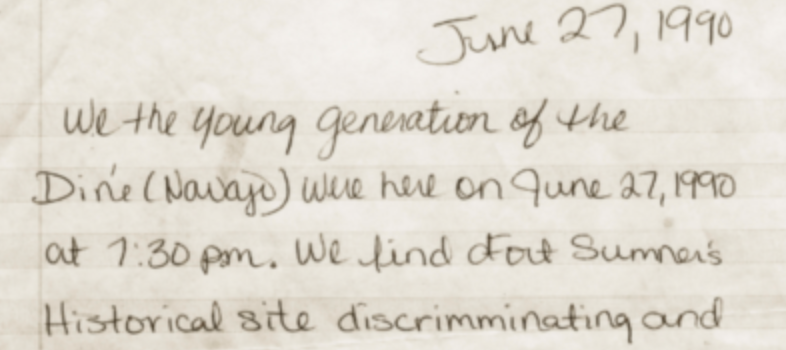 June 27, 1990
We the young generation of the
Diné (Navajo) were here on June 27, 1990
at 7:30 pm. We find Fort Sumner's
Historical site discrimminating and